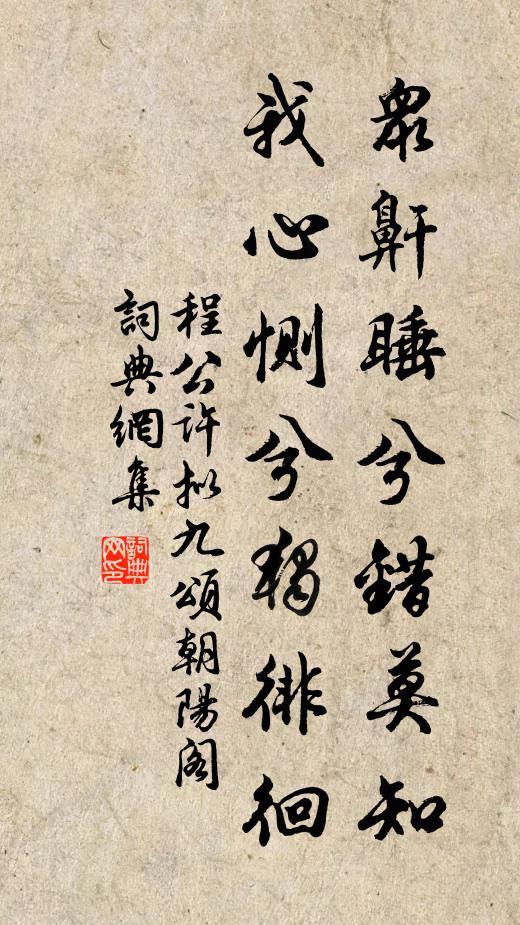 衆鼾睡兮錯莫知
我心惻兮獨徘徊
程公許拟九頌朝陽阁
詞典網集
詞典
网印